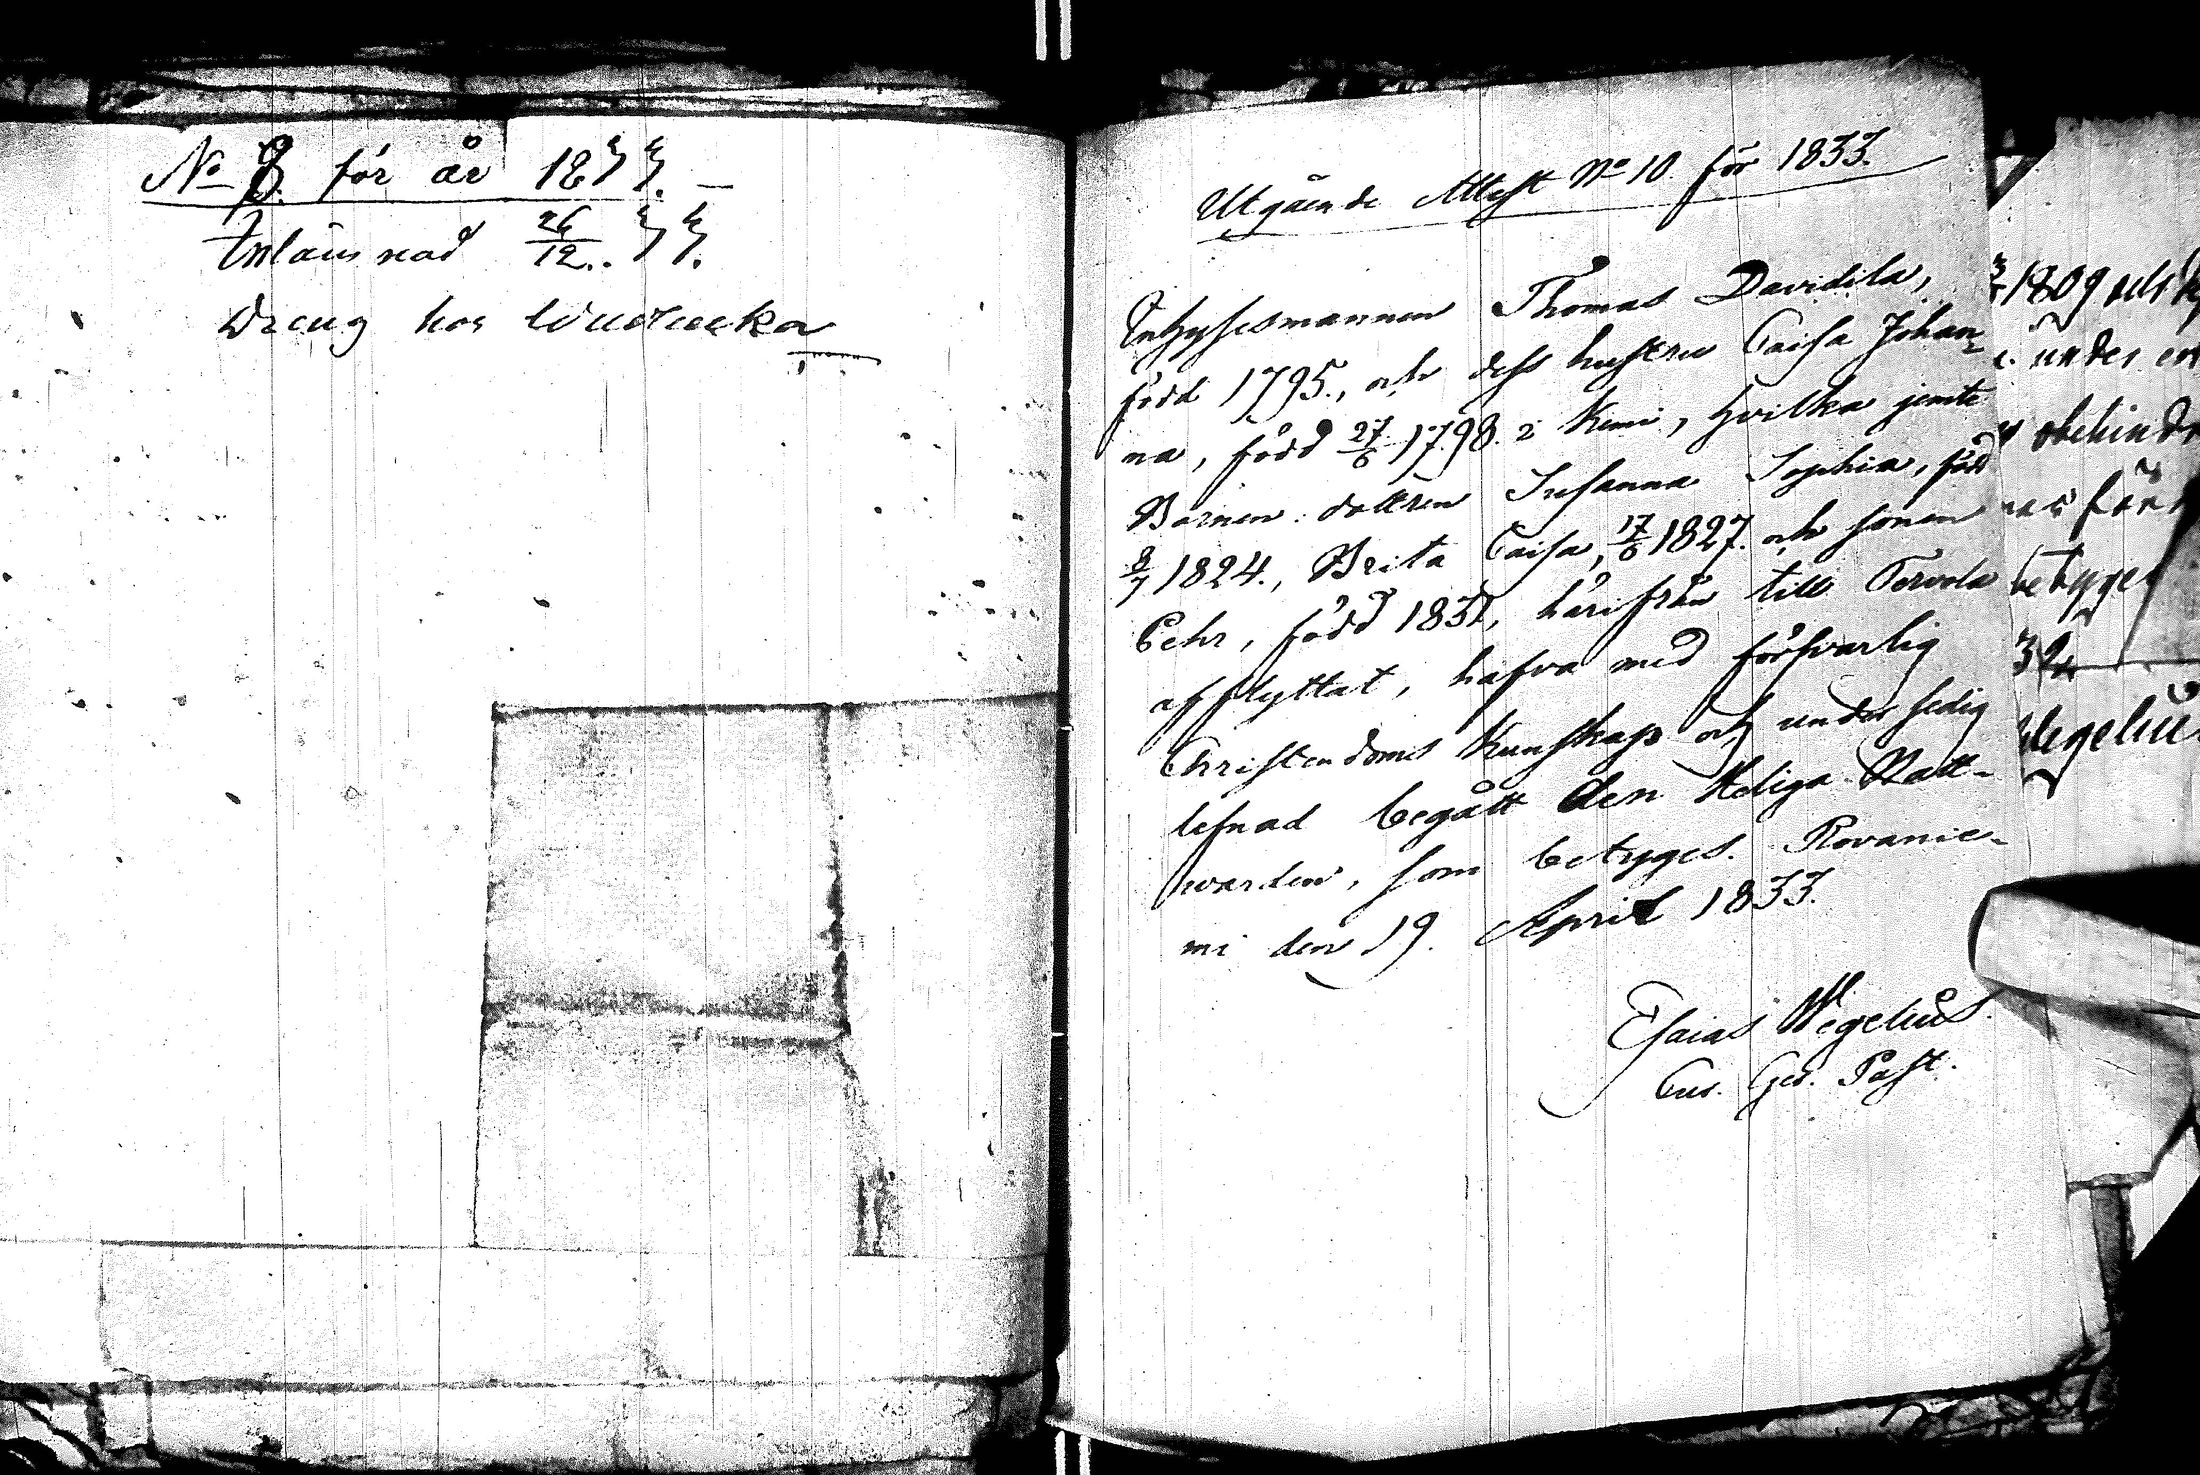 No 8. för år 1833. —
Inlämnad 26/12. 33.
Dreng hos
Utgående Attest No 10. för 1833.
Inhysesmannen Thomas Davidila,
född 1795., och dess hustru Caisa Johan-
na, född 27/6 1798. i Kemi, hvilka jemte
Barnen: dottren Susanna Sophia, född
8/7 1824., Brita Caisa, 17/6 1827. och sonen
Pehr, född 1831, härifrån till Tervola
afflyttat, hafva med försvarlig
Christendoms Kunskap och under sedig
lefnad begått den Heliga Natt-
warden, som betyges. Rovanie-
mi den 19. April 1833.
Esaias Wegelius.
Cur. Ger. Past.
1809 och
under en
obehindr
för
betyges
32
Wegelius